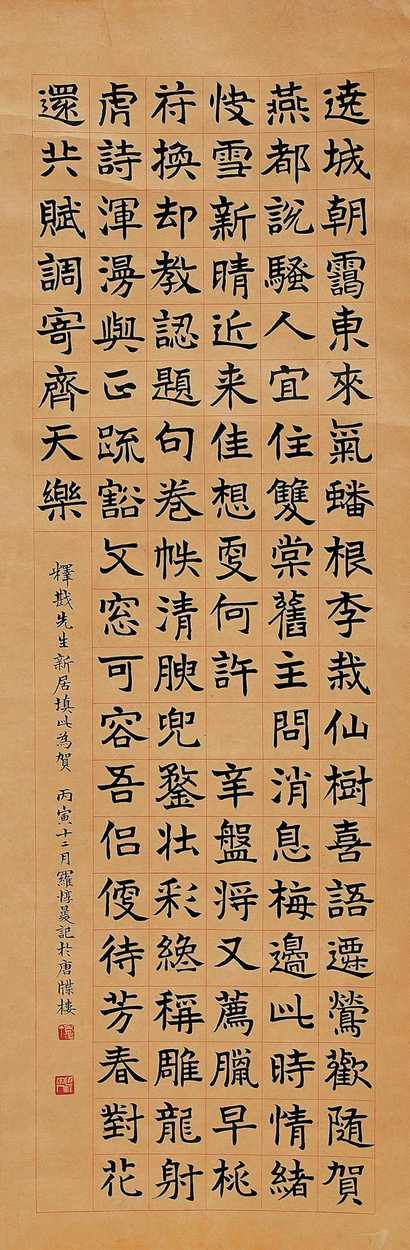 遶城朝靄東來氣蟠根李栽仙樹喜語遷鶯歡隨賀
燕都說騷人宜住雙棠舊主問消息梅邊此時情緒
快雪新晴近来佳想更何許 辛盤將又薦臘早桃
符換却教認題句卷帙清腴兜鍪壯彩總稱雕龍射
虎詩渾漫與正疏豁文窓可容吾侶便待芳春對花
還共賦調寄齊天樂
釋戡先生新居填此為賀 丙寅十二月羅惇㬊記於唐牒樓